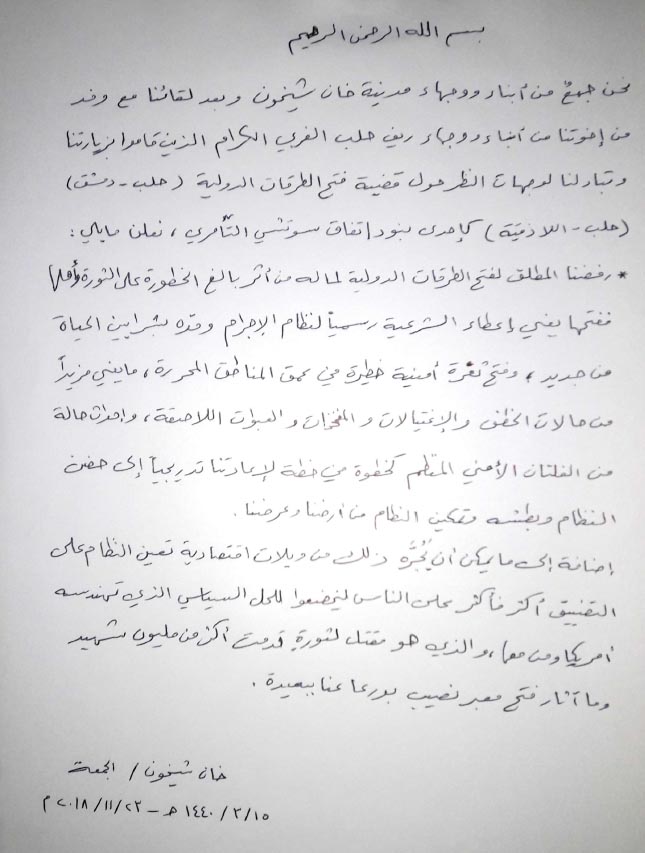 بسم الله الرحمن الرحيم
نحن جمعٌ من أبناء ووجهاء مدينة خان شيخون وبعد لقائنا مع وفد
من إخوتنا من أبناء ووجهاء ريف حلب الغربي الكرام الذين قاموا بزيارتنا
وتبادلنا لوجهات النظر حول قضية فتح الطرقات الدولية (حلب - دمشق)
(حلب - اللاذقية) كإحدى بنود إتفاق سوتشي التآمري، نعلن مايلي:
* رفضنا المطلق لفتح الطرقات الدولية لما له من أثر بالغ الخطورة على الثورة وأهلها
ففتحها يعني إعطاء الشرعية رسمياً لنظام الإجرام ومده بشرايين الحياة
من جديد، وفتح ثغرة أمنية خطيرة في عمق المناطق المحررة، ما يعني مزيداً
من حالات الخطف والإغتيالات والمفخخات والعبوات اللاصقة، وإحداث حالة
من الفلتان الأمني المنظم كخطوة في خطة لإعادتنا تدريجياً إلى حضن
النظام وبطشه وتمكين النظام من أرضنا وعرضنا.
إضافة إلى ما يمكن أن يجرَّه ذلك من ويلات اقتصادية تعين النظام على
التضييق أكثر فأكثر على الناس ليخضعوا للحل السياسي الذي تهندسه
أمريكا ومن معها، والذي هو مقتل لثورة قدمت أكثر من مليون شهيد
وما آثار فتح معبر نصيب بدرعا عنا ببعيدة.
خان شيخون / الجمعة
١٥/٣/١٤٤٠ هـ - ٢٣/١١/٢٠١٨ م